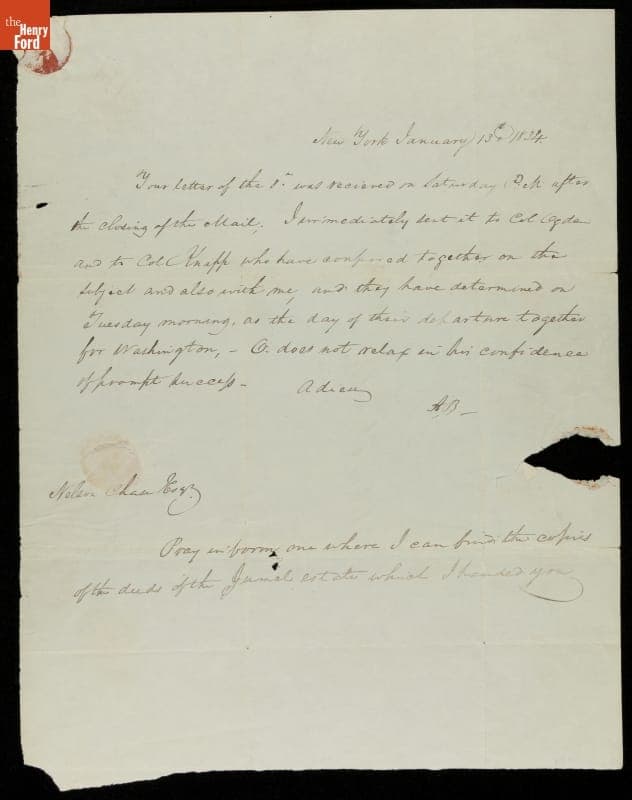 the
Henry
Ford
New York January 13th 1834
Your letter of the 8th was recieved on Saturday P.M after
the closing of the Mail. I immediately sent it to Col Ogden
and to Col Knapp who have conferred together on the
subject and also with me, and they have determined on
Tuesday morning, as the day of their departure together
for Washington, – O. does not relax in his confidence
of prompt success –
Adieu
A,B –
Nelson Chase Esqr.
Pray inform me where I can find the copies
of the deeds of the Jumel estate which I handed you